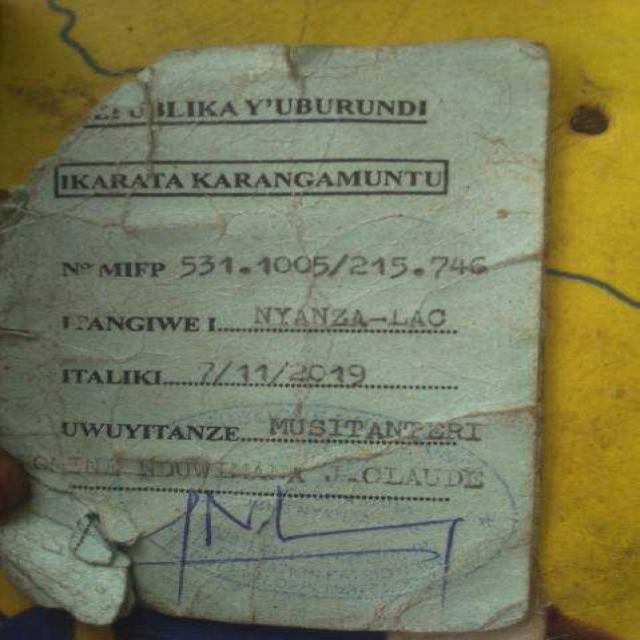 REPUBLIKA Y'UBURUNDI
IKARATA KARANGAMUNTU
N° MIFP 531.1005/215.746
ITANGIWE I.... NYANZA-LAC
ITALIKI..... 7/11/2019
UWUYITANZE... MUSITANTERI
NDUWIMANA J.CLAUDE